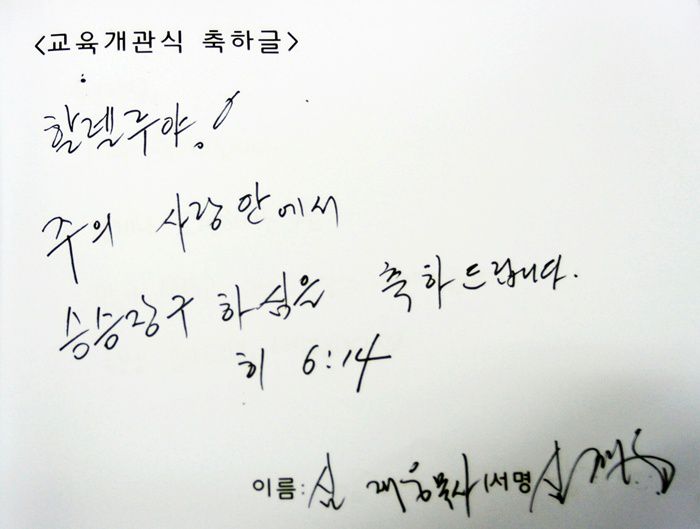 <교육개관식 축하글>
할렐루야!
주의 사랑안에서
승승장구 하심을 축하드립니다.
히 6:14
이름: 심 재웅목사 (서명 심